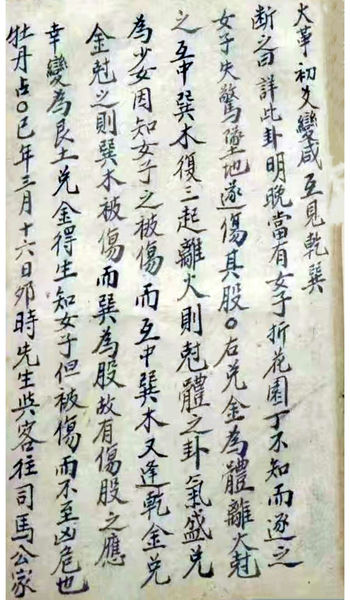 火革初爻變咸互見乾巽
断之曰詳此卦明晚當有女子折花園丁不知而逐之
女子失驚墜地遂傷其股〇右兌金為體離火尅
之互中巽木復三起離火則尅體之卦氣盛兌
為少女因知女子之被傷而互中巽木又逢乾金兌
金尅之則巽木被傷而巽為股故有傷股之應
幸變為艮土兌金得生知女子但被傷而不至凶危也
牡丹占〇巳年三月十六日卯時先生與客往司馬公家